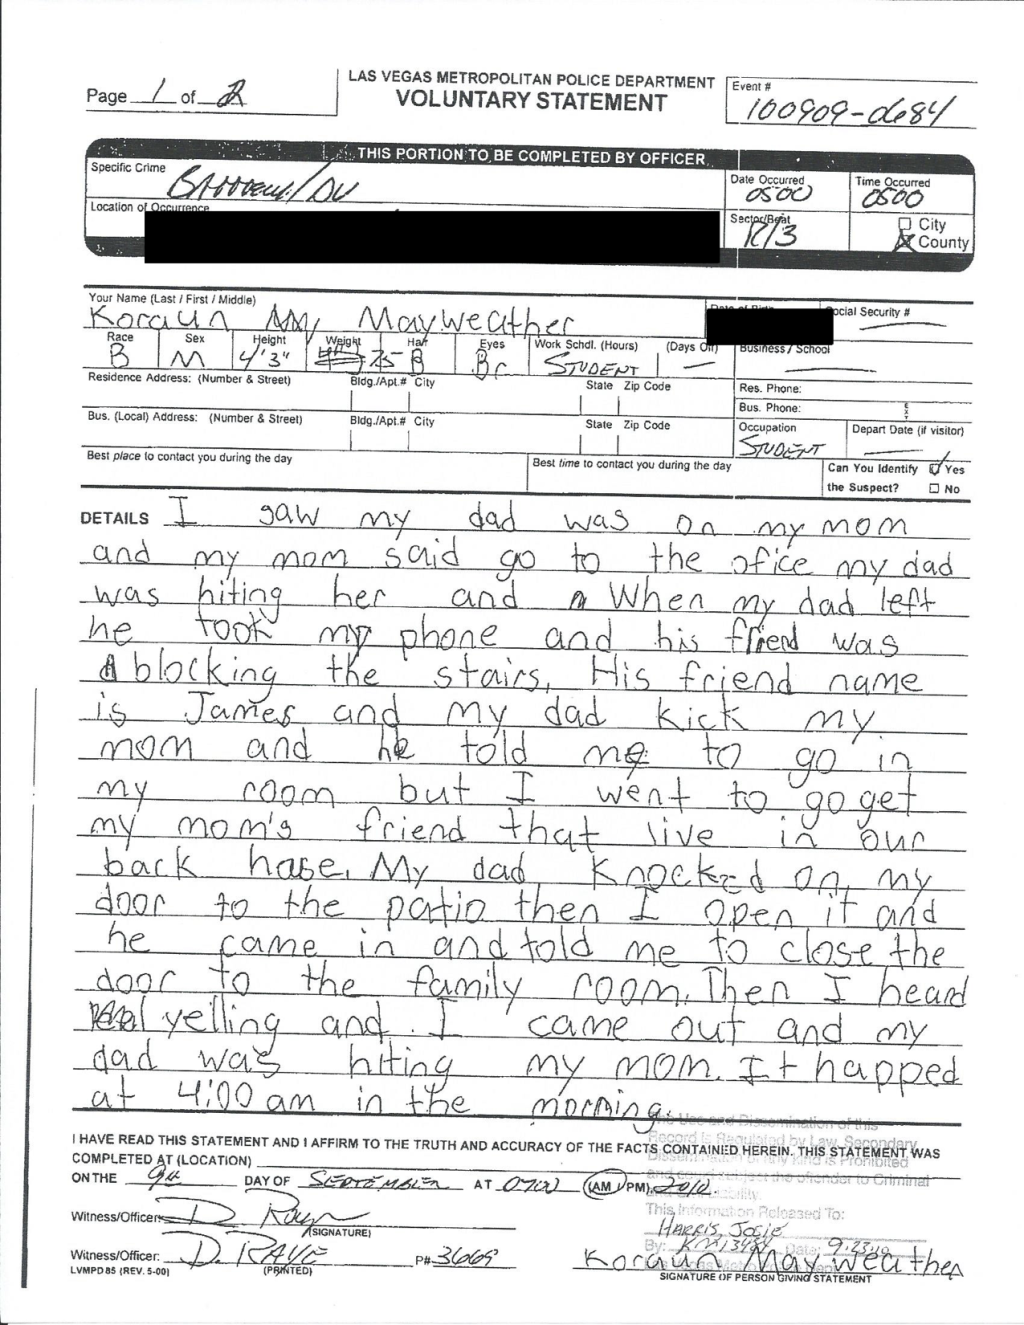 Page 1 of 2
LAS VEGAS METROPOLITAN POLICE DEPARTMENT
VOLUNTARY STATEMENT
Event #
100909-0684
THIS PORTION TO BE COMPLETED BY OFFICER
Specific Crime
Battery/DV
Date Occurred
0500
Time Occurred
0500
Location of Occurrence
Sector/Beat
R/3
City
County
Your Name (Last / First / Middle)
Koraun Mayweather
Date of Birth
Social Security #
Race
B
Sex
M
Height
4'3"
Weight
75
Hair
B
Eyes
Br
Work Schdl. (Hours)
STUDENT
(Days Off)
Business / School
Residence Address: (Number & Street) Bldg./Apt.# City State Zip Code
Res. Phone:
Bus. Phone:
Bus. (Local) Address: (Number & Street) Bldg./Apt.# City State Zip Code
Occupation
STUDENT
Depart Date (if visitor)
Best place to contact you during the day
Best time to contact you during the day
Can You Identify the Suspect?
Yes
No
DETAILS I saw my dad was on my mom
and my mom said go to the ofice my dad
was hiting her and When my dad left
he took my phone and his friend was
blocking the stairs, His friend name
is James and my dad kick my
mom and he told me to go in
my room but I went to go get
my mom's friend that live in our
back hase. My dad knocked on my
door to the patio then I open it and
he came in and told me to close the
door to the family room. Then I heard
yelling and I came out and my
dad was hiting my mom. It happed
at 4:00 am in the morning.
I HAVE READ THIS STATEMENT AND I AFFIRM TO THE TRUTH AND ACCURACY OF THE FACTS CONTAINED HEREIN. THIS STATEMENT WAS
COMPLETED AT (LOCATION)
ON THE 9th DAY OF SEPTEMBER AT 0700 (AM / PM), 2010.
Witness/Officer: D. Raye
(SIGNATURE)
Witness/Officer: D. RAYE P# 3669
(PRINTED)
LVMPD 85 (REV. 5-00)
Use and Dissemination of this
Record is Regulated by Law. Secondary
Dissemination of any kind is Prohibited
and subject the offender to Criminal
This Information Released To:
HARRIS, JOSIE
Date: 9-23-10
Koraun Mayweather
SIGNATURE OF PERSON GIVING STATEMENT